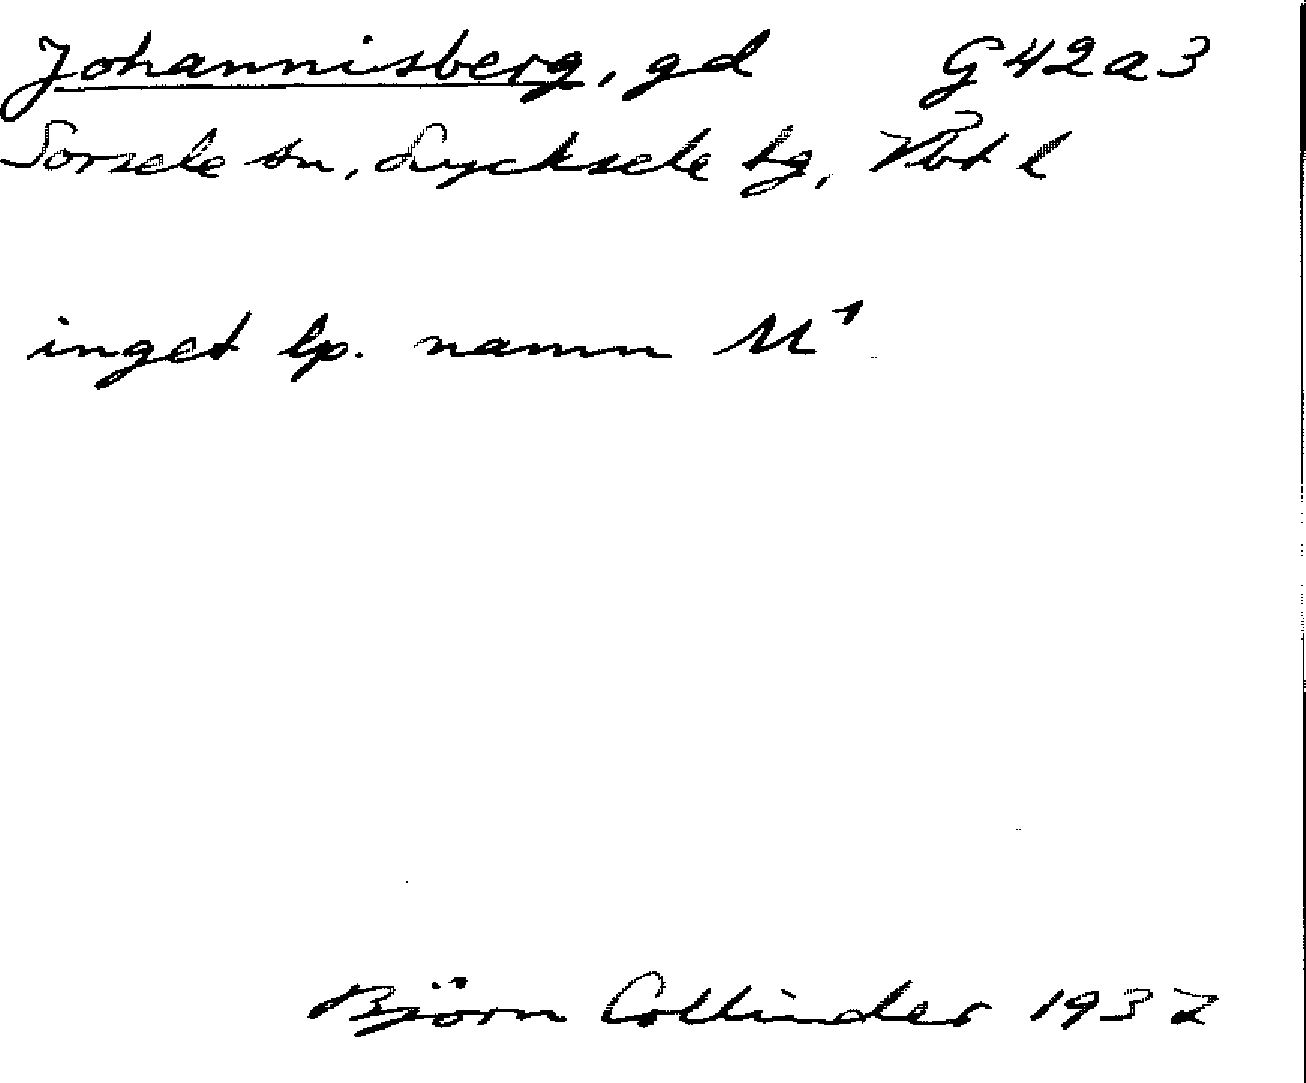 Johannisberg, gd G42a3
Sorsele sn, Lycksele lg, Vbt l
inget lp. namn M¹
Björn Collinder 1937